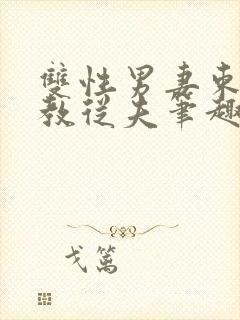 雙性男妻東
教從夫筆趣
戈篙